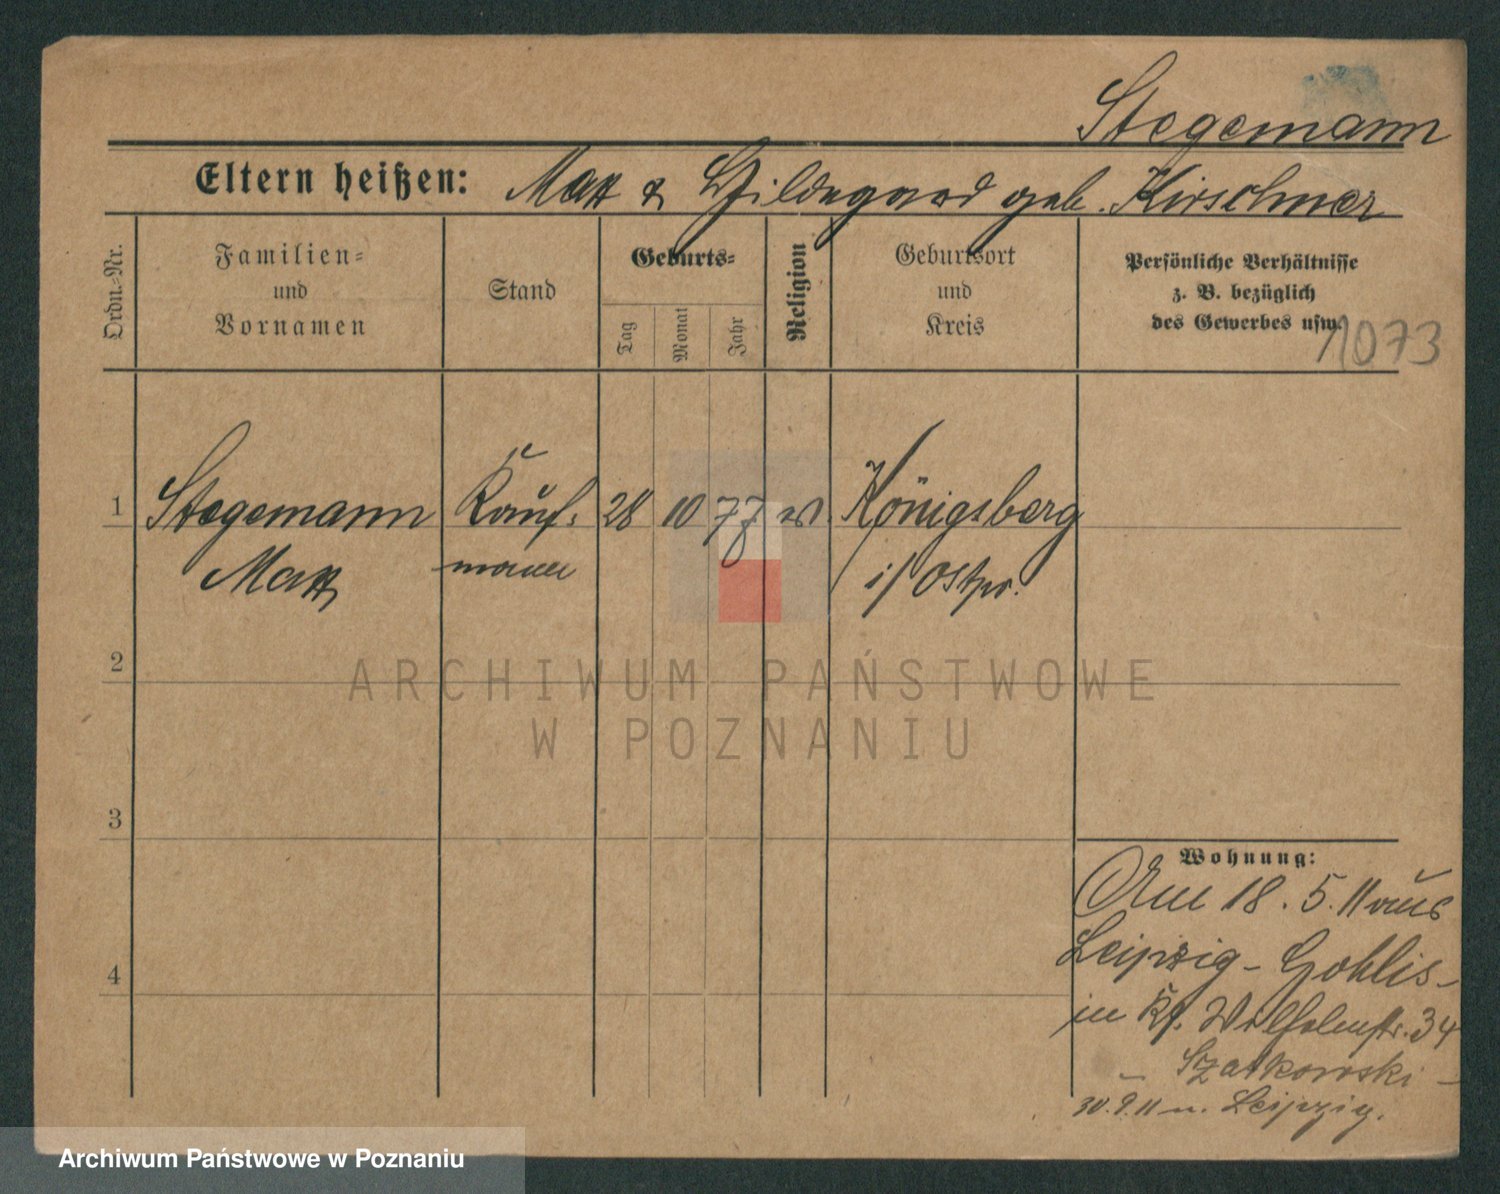 Stegemann
Eltern heißen: Max & Hildegard geb. Kirschner
Ordn.-Nr.
Familien-
und
Vornamen
Stand
Geburts-
Tag
Monat
Jahr
Religion
Geburtsort
und
Kreis
Persönliche Verhältnisse
z. B. bezüglich
des Gewerbes usw.
1073
1 Stegemann Kauf- 28 10 77 Königsberg
Max mann i/ Ostpr.
2
ARCHIWUM PAŃSTWOWE
W POZNANIU
3
Wohnung:
Am 18. 5. 11 aus
Leipzig - Gohlis -
4
in 34
- Szatkowski -
30.9.11 n. Leipzig.
Archiwum Państwowe w Poznaniu